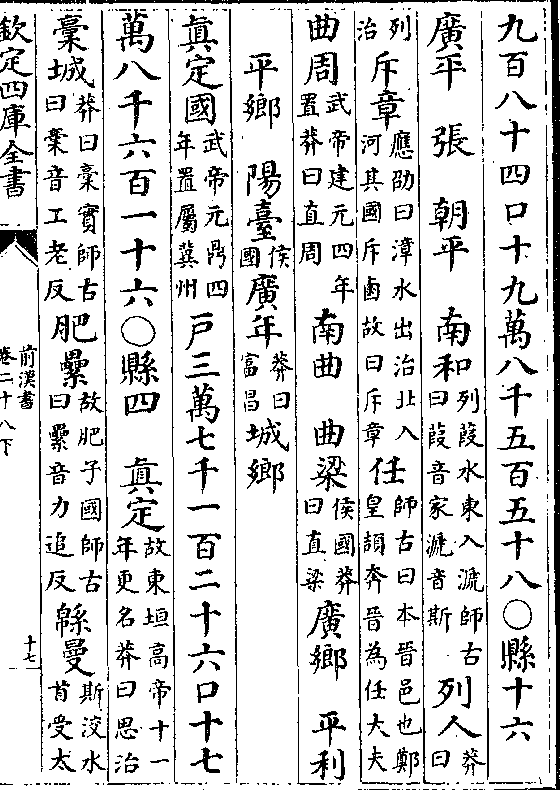 九百八十四口十九萬八千五百五十八○縣十六
廣平　張　朝平　南和列葭水東入㴲師古曰葭音家㴲音斯　列人莽曰
列治　斥章應劭曰漳水出治北入河其國斥鹵故曰斥章　任師古曰本晉邑也鄭皇頡奔晉為任大夫
曲周武帝建元四年置莽曰直周　南曲　曲梁侯國莽曰直梁　廣鄉　平利
平鄉　陽臺侯國　廣年莽曰富昌　城鄉
真定國武帝元鼎四年置屬冀州　戸三萬七千一百二十六口十七
萬八千六百一十六○縣四　真定故東垣高帝十一年更名莽曰思治
稾城莽曰稾實師古曰稾音工老反　肥纍故肥子國師古曰纍音力追反　緜曼斯洨水首受太
欽定四庫全書
前漢書
卷二十八下
十七